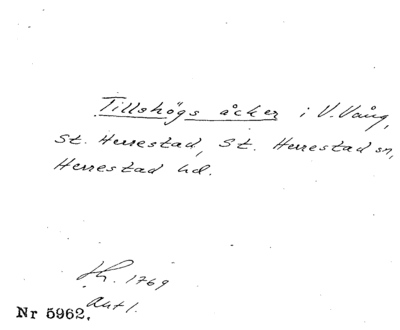 Tillshögs åcker i V. Vång,
St. Herrestad, St. Herrestad sn,
Herrestad hd.
Lh. 1769
Akt 1.
Nr 5962.